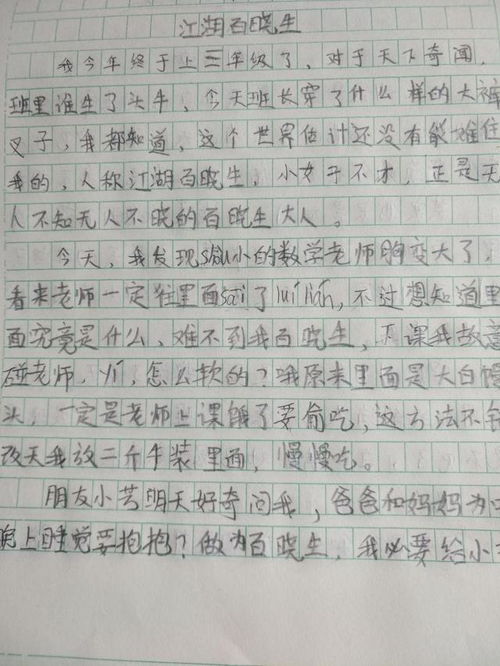 江湖百晓生
我今年终于上三年级了，对于天下奇闻，
班里谁生了头牛，今天班长穿了什么样的大裤
叉子，我都知道，这个世界估计还没有能难住
我的，人称江湖百晓生，小女子不才，正是无
人不知无人不晓的百晓生大人。
今天，我发现瘦小的数学老师胸变大了，
看来老师一定往里面sāi了liú lián，不过想知道里
面究竟是什么，难不到我百晓生，下课我故意
碰老师，yí，怎么软的？哦原来里面是大白馒
头，一定是老师上课饿了要偷吃，这方法不错
改天我放二斤牛装里面，慢慢吃。
朋友小芳明天好奇问我，爸爸和妈妈为
晚上睡觉要抱抱？做为百晓生，我必要给小